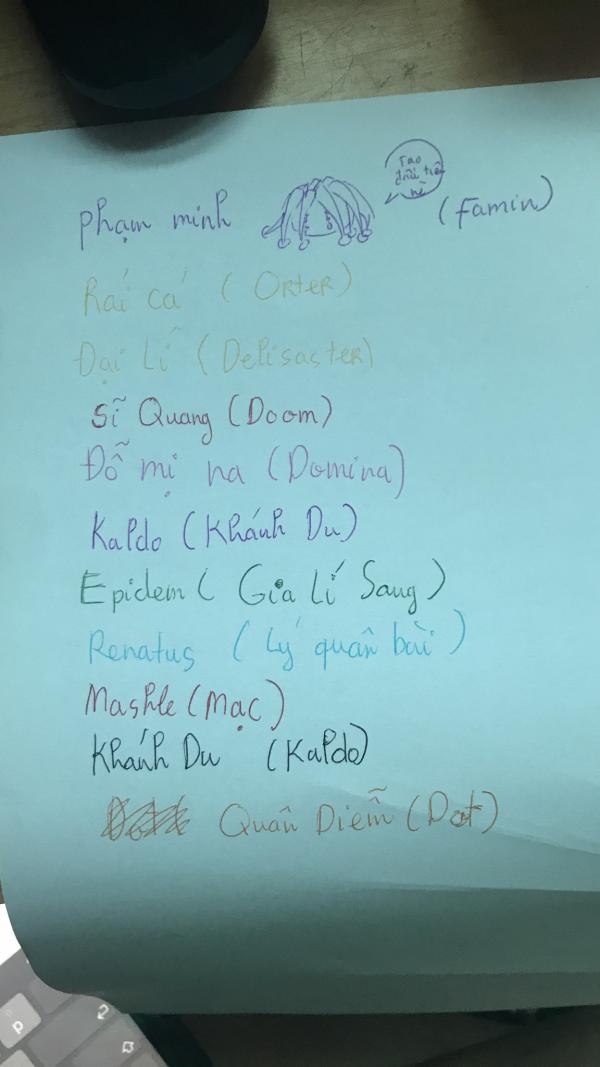 Phạm minh
Tao
đầu tiên
nè
(Famin)
Rái cá (Orter)
Đại Lí (Delisaster)
Sĩ Quang (Doom)
Đỗ mị na (Domina)
Kaldo (Khánh Du)
Epidem (Gia Lí Sang)
Renatus (Lý quân bài)
Mashle (Mạc)
Khánh Du (Kaldo)
Quân Diễm (Dot)
P